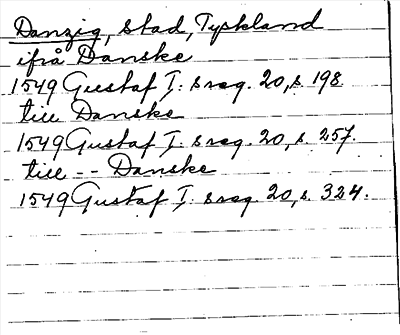 Danzig, Stad, Tyskland
ifrå Danske
1549 Gustaf I: s reg. 20, s. 198
till Danske
1549 Gustaf I: s reg. 20, s. 257.
till -- Danske
1549 Gustaf I: s reg. 20, s. 324.